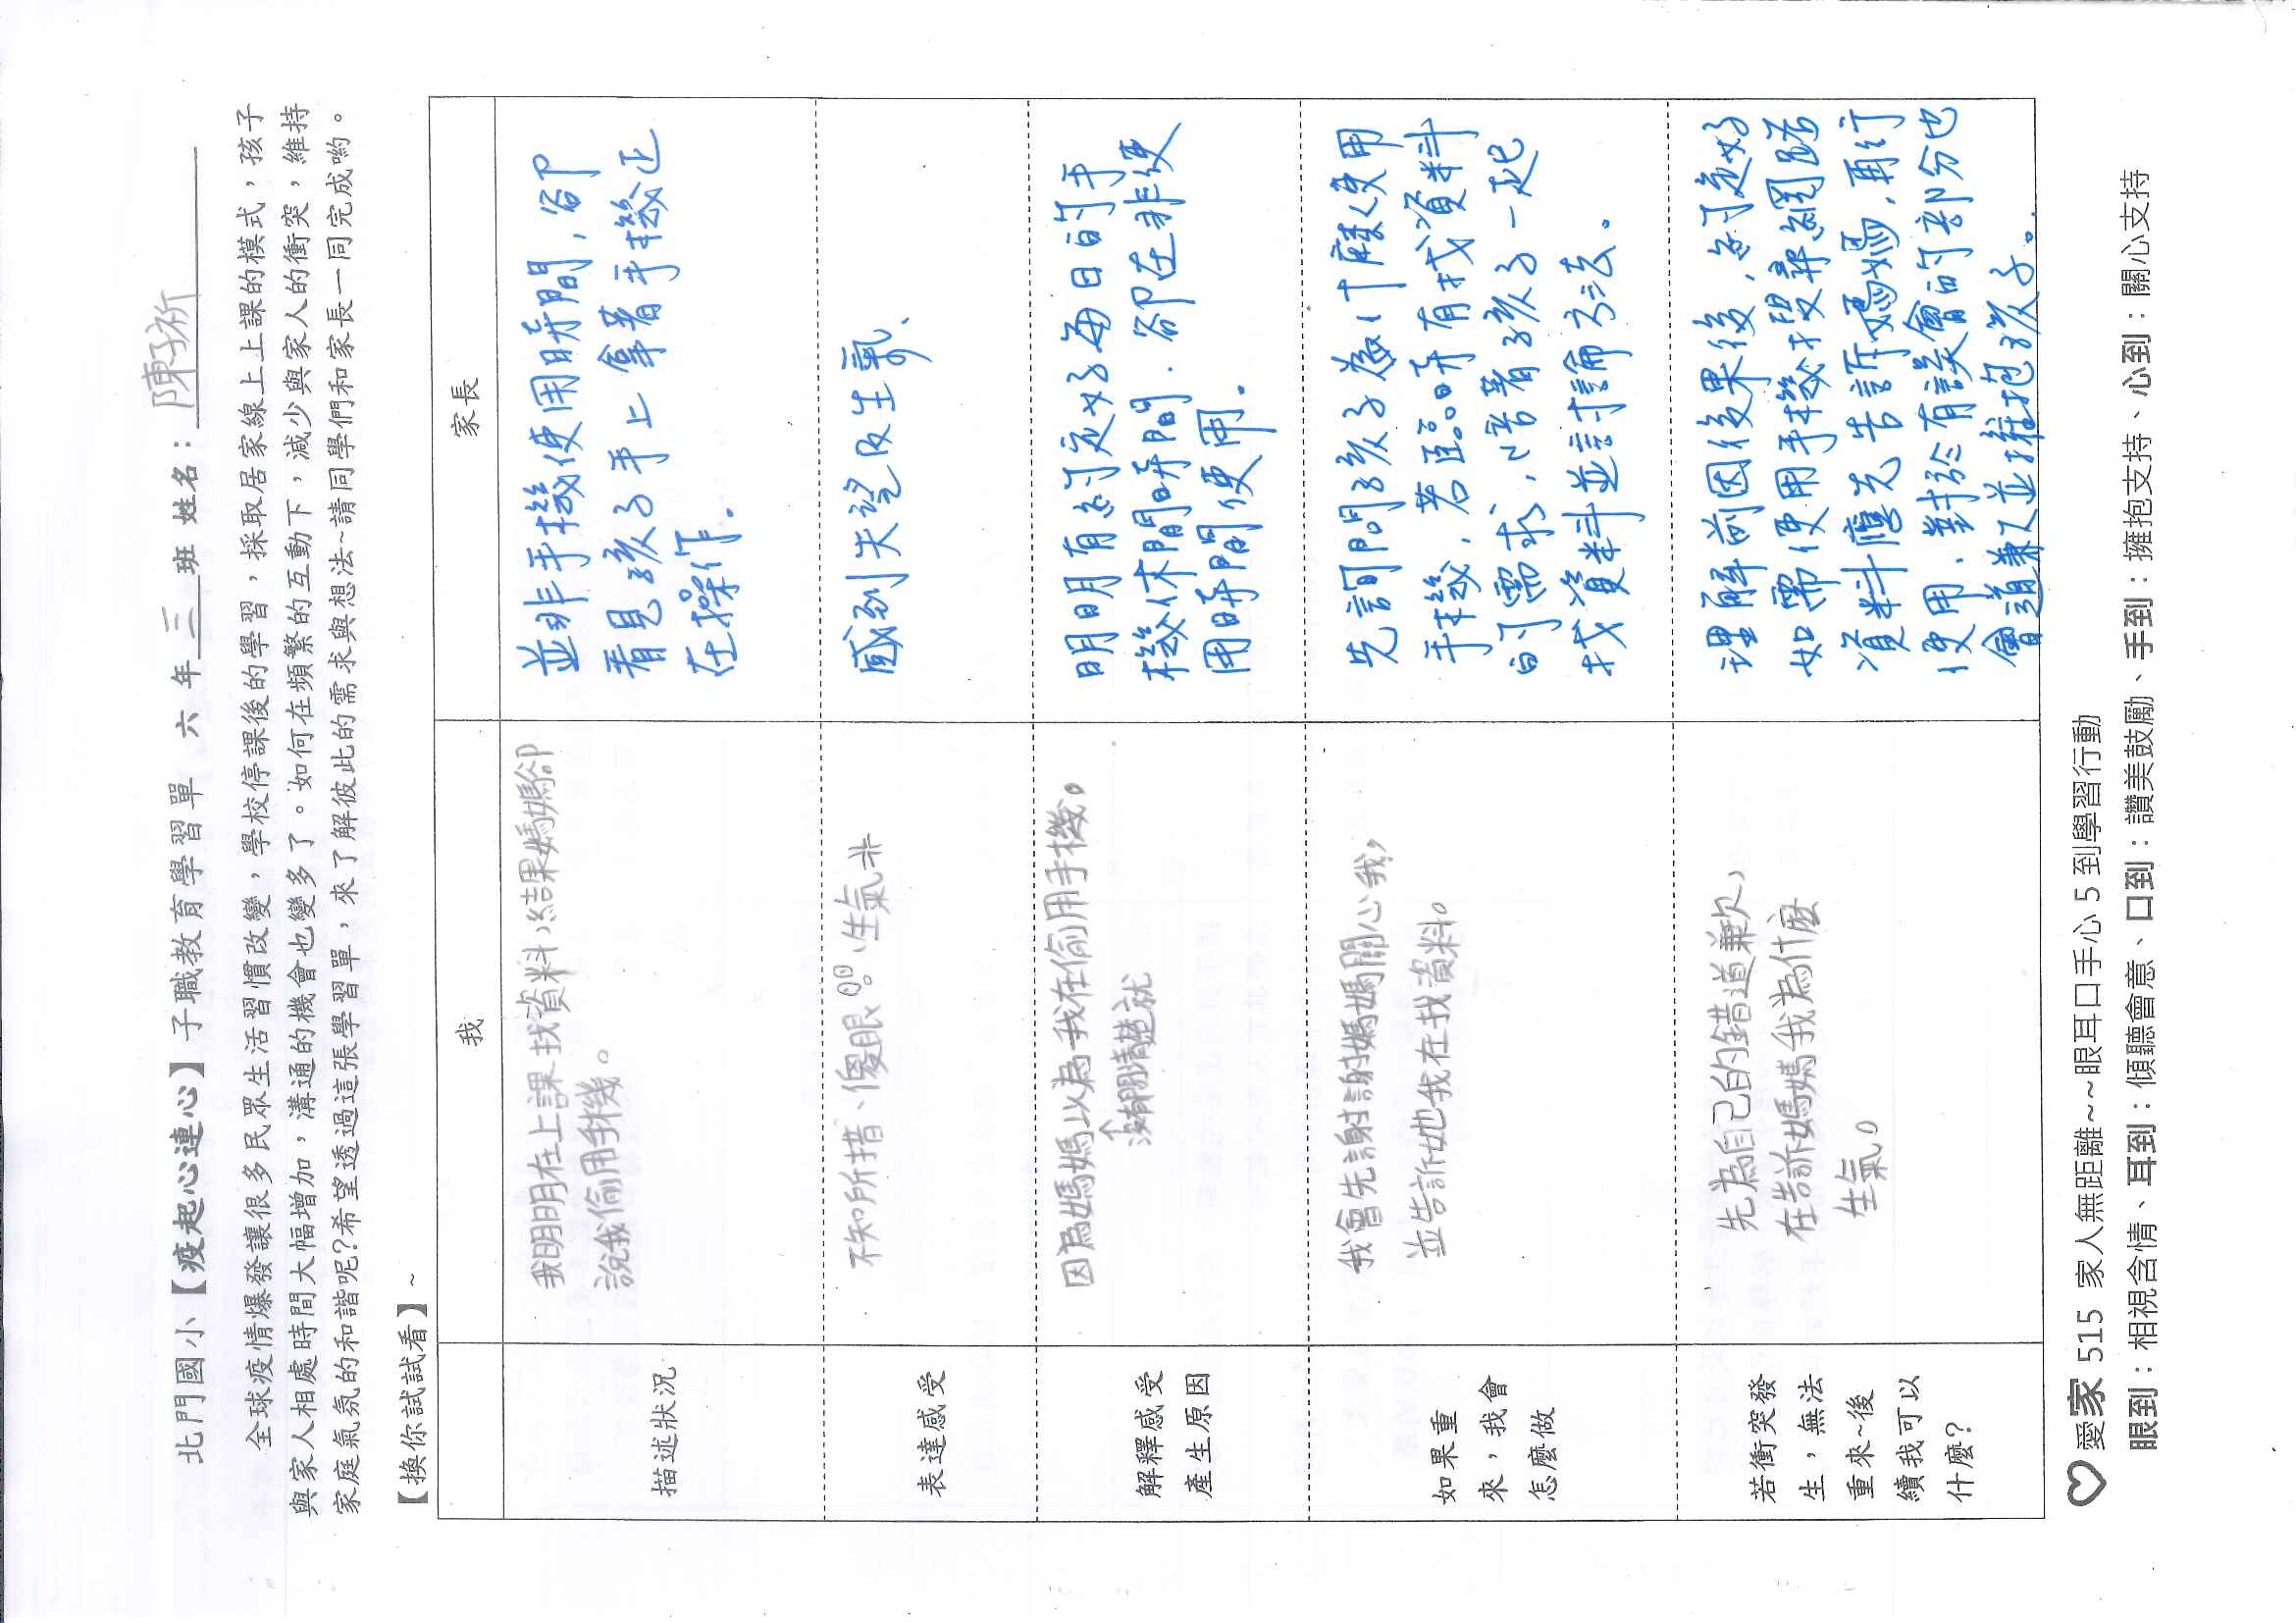 北門國小【疫起心連心】子職教育學習單 六 年 三 班 姓名：陳祈
全球疫情爆發讓很多民眾生活習慣改變，學校停課後的學習，採取居家線上上課的模式，孩子
與家人相處時間大幅增加，溝通的機會也變多了。如何在頻繁的互動下，減少與家人的衝突，維持
家庭氣氛的和諧呢?希望透過這張學習單，來了解彼此的需求與想法~請同學們和家長一同完成喲。
【換你試試看】~
我
家長
描述狀況
我明明在上課找資料，結果媽媽卻
說我偷用手機。
並非手機使用時間，卻
看見孩子手上拿著手機正
在操作。
表達感受
不知所措、傻眼、生氣
感到失望及生氣、
解釋感受
產生原因
因為媽媽以為我在偷用手機。
沒有問清楚就
明明有約定好每日的手
機休閒時間，卻在非使
用時間使用。
如果重
來，我會
怎麼做
我會先謝謝媽媽關心我，
並告訴她我在找資料。
先詢問孩子為什麼使用
手機，若臨時有找資料
的需求，陪著孩子一起
找資料並討論方法。
若衝突發
生，無法
重來~後
續我可以
什麼?
先為自己的錯道歉，
在告訴媽媽我為什麼
生氣。
理解前因後果後，約定好
如需使用手機搜尋網路
資料應先告訴媽媽，再行
使用，對於有誤會的部分也
會道歉並擁抱孩子。
愛家 515 家人無距離~~眼耳口手心 5 到學習行動
眼到：相視含情、耳到：傾聽會意、口到：讚美鼓勵、手到：擁抱支持、心到：關心支持